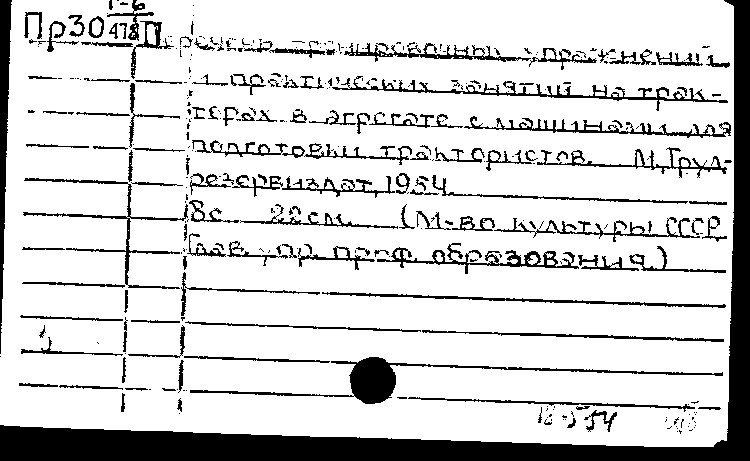 Г-6
Пр30 478 Перечень тренировочных упражнений
и практических занятий на трак-
торах в агрегате с машинами для
подготовки трактористов. М., Труд-
резервиздат, 1954.
8с. 22см. (М-во культуры СССР.
Глав. упр. проф. образования.)
18-554